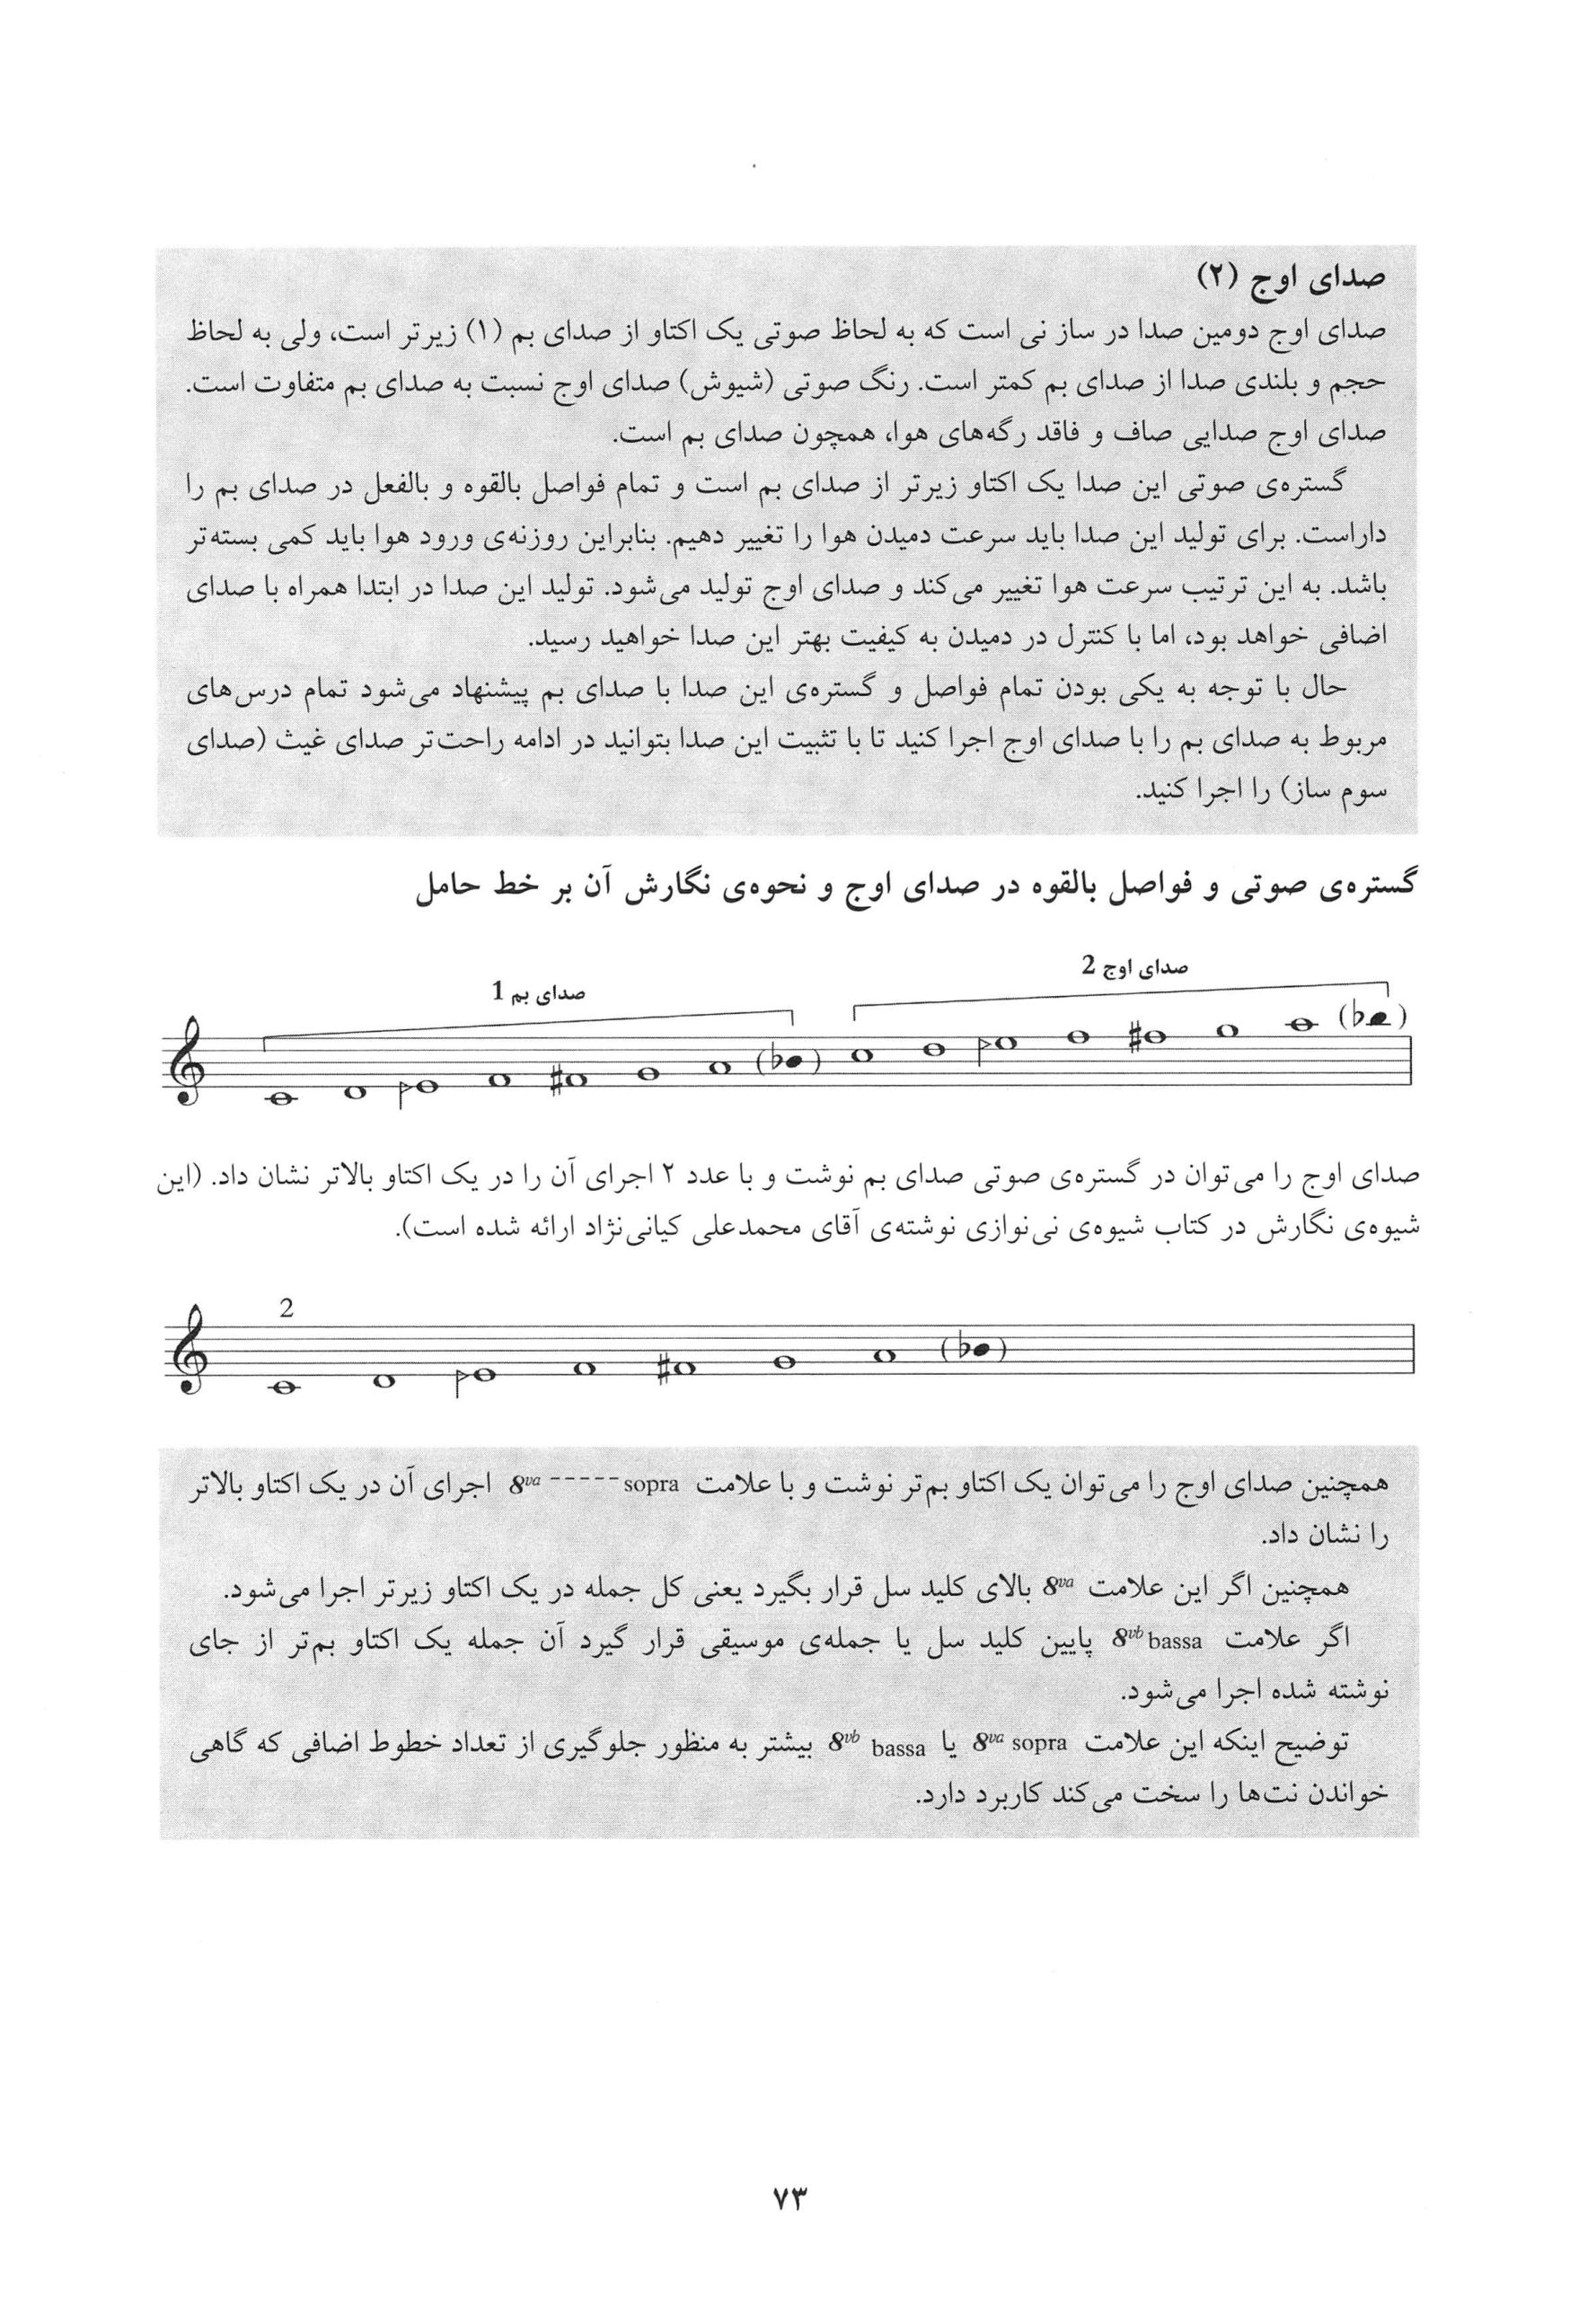 صدای اوج (۲)
صدای اوج دومین صدا در ساز نی است که به لحاظ صوتی یک اکتاو از صدای بم (۱) زیرتر است، ولی به لحاظ
حجم و بلندی صدا از صدای بم کمتر است. رنگ صوتی (شیوش) صدای اوج نسبت به صدای بم متفاوت است.
صدای اوج صدایی صاف و فاقد رگه‌های هوا، همچون صدای بم است.
گستره‌ی صوتی این صدا یک اکتاو زیرتر از صدای بم است و تمام فواصل بالقوه و بالفعل در صدای بم را
داراست. برای تولید این صدا باید سرعت دمیدن هوا را تغییر دهیم. بنابراین روزنه‌ی ورود هوا باید کمی بسته‌تر
باشد. به این ترتیب سرعت هوا تغییر می‌کند و صدای اوج تولید می‌شود. تولید این صدا در ابتدا همراه با صدای
اضافی خواهد بود، اما با کنترل در دمیدن به کیفیت بهتر این صدا خواهید رسید.
حال با توجه به یکی بودن تمام فواصل و گستره‌ی این صدا با صدای بم پیشنهاد می‌شود تمام درس‌های
مربوط به صدای بم را با صدای اوج اجرا کنید تا با تثبیت این صدا بتوانید در ادامه راحت‌تر صدای غیث (صدای
سوم ساز) را اجرا کنید.
گستره‌ی صوتی و فواصل بالقوه در صدای اوج و نحوه‌ی نگارش آن بر خط حامل
صدای اوج 2
صدای بم 1
صدای اوج را می‌توان در گستره‌ی صوتی صدای بم نوشت و با عدد ۲ اجرای آن را در یک اکتاو بالاتر نشان داد. (این
شیوه‌ی نگارش در کتاب شیوه‌ی نی‌نوازی نوشته‌ی آقای محمدعلی کیانی‌نژاد ارائه شده است).
2
همچنین صدای اوج را می‌توان یک اکتاو بم‌تر نوشت و با علامت 8va -----sopra اجرای آن در یک اکتاو بالاتر
را نشان داد.
همچنین اگر این علامت 8va بالای کلید سل قرار بگیرد یعنی کل جمله در یک اکتاو زیرتر اجرا می‌شود.
اگر علامت 8vb bassa پایین کلید سل یا جمله‌ی موسیقی قرار گیرد آن جمله یک اکتاو بم‌تر از جای
نوشته شده اجرا می‌شود.
توضیح اینکه این علامت 8va sopra یا 8vb bassa بیشتر به منظور جلوگیری از تعداد خطوط اضافی که گاهی
خواندن نت‌ها را سخت می‌کند کاربرد دارد.
۷۳